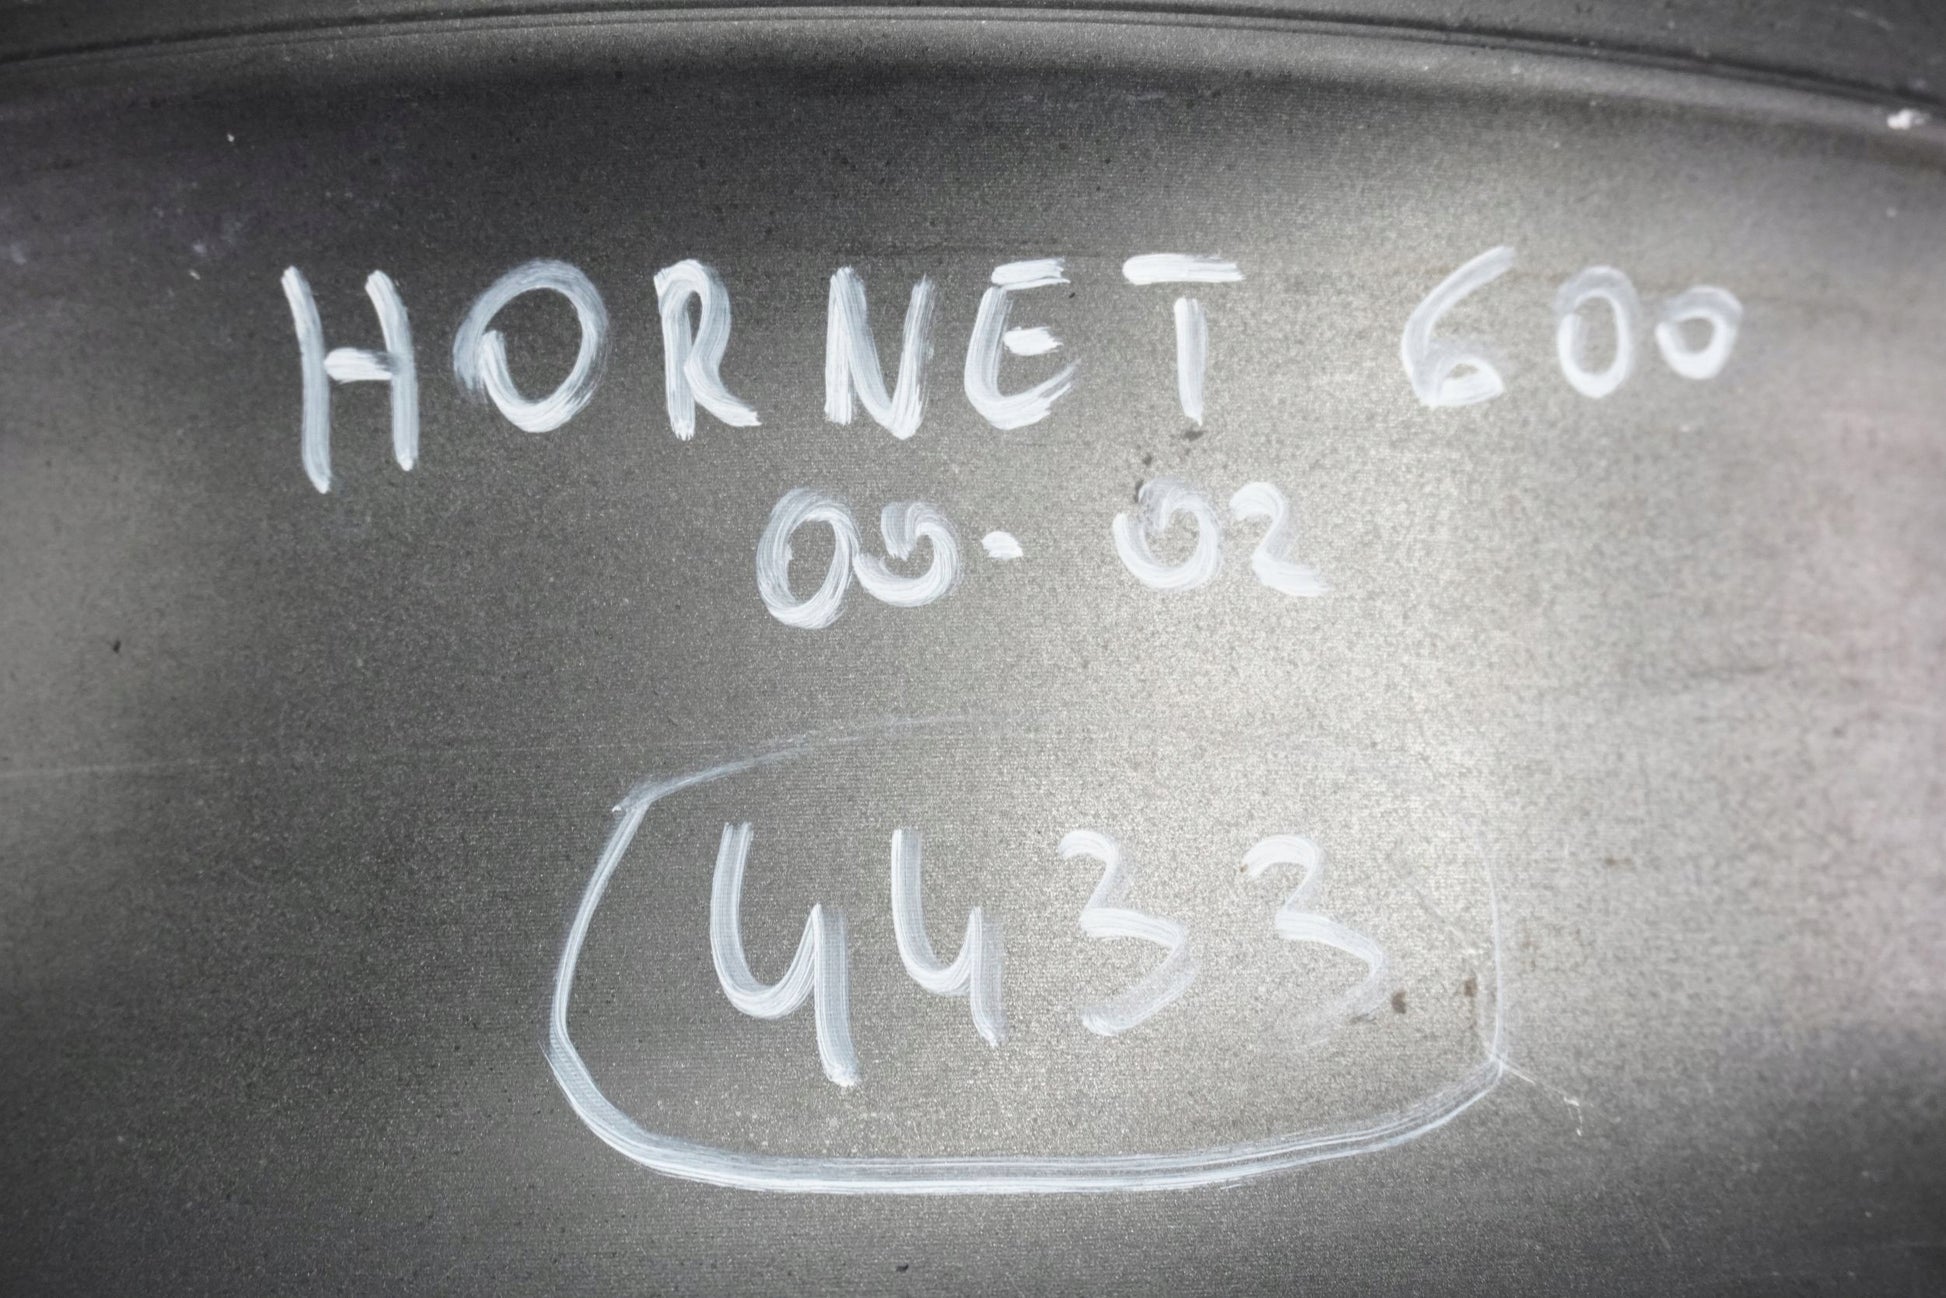 HORNET 600
00-02
4433